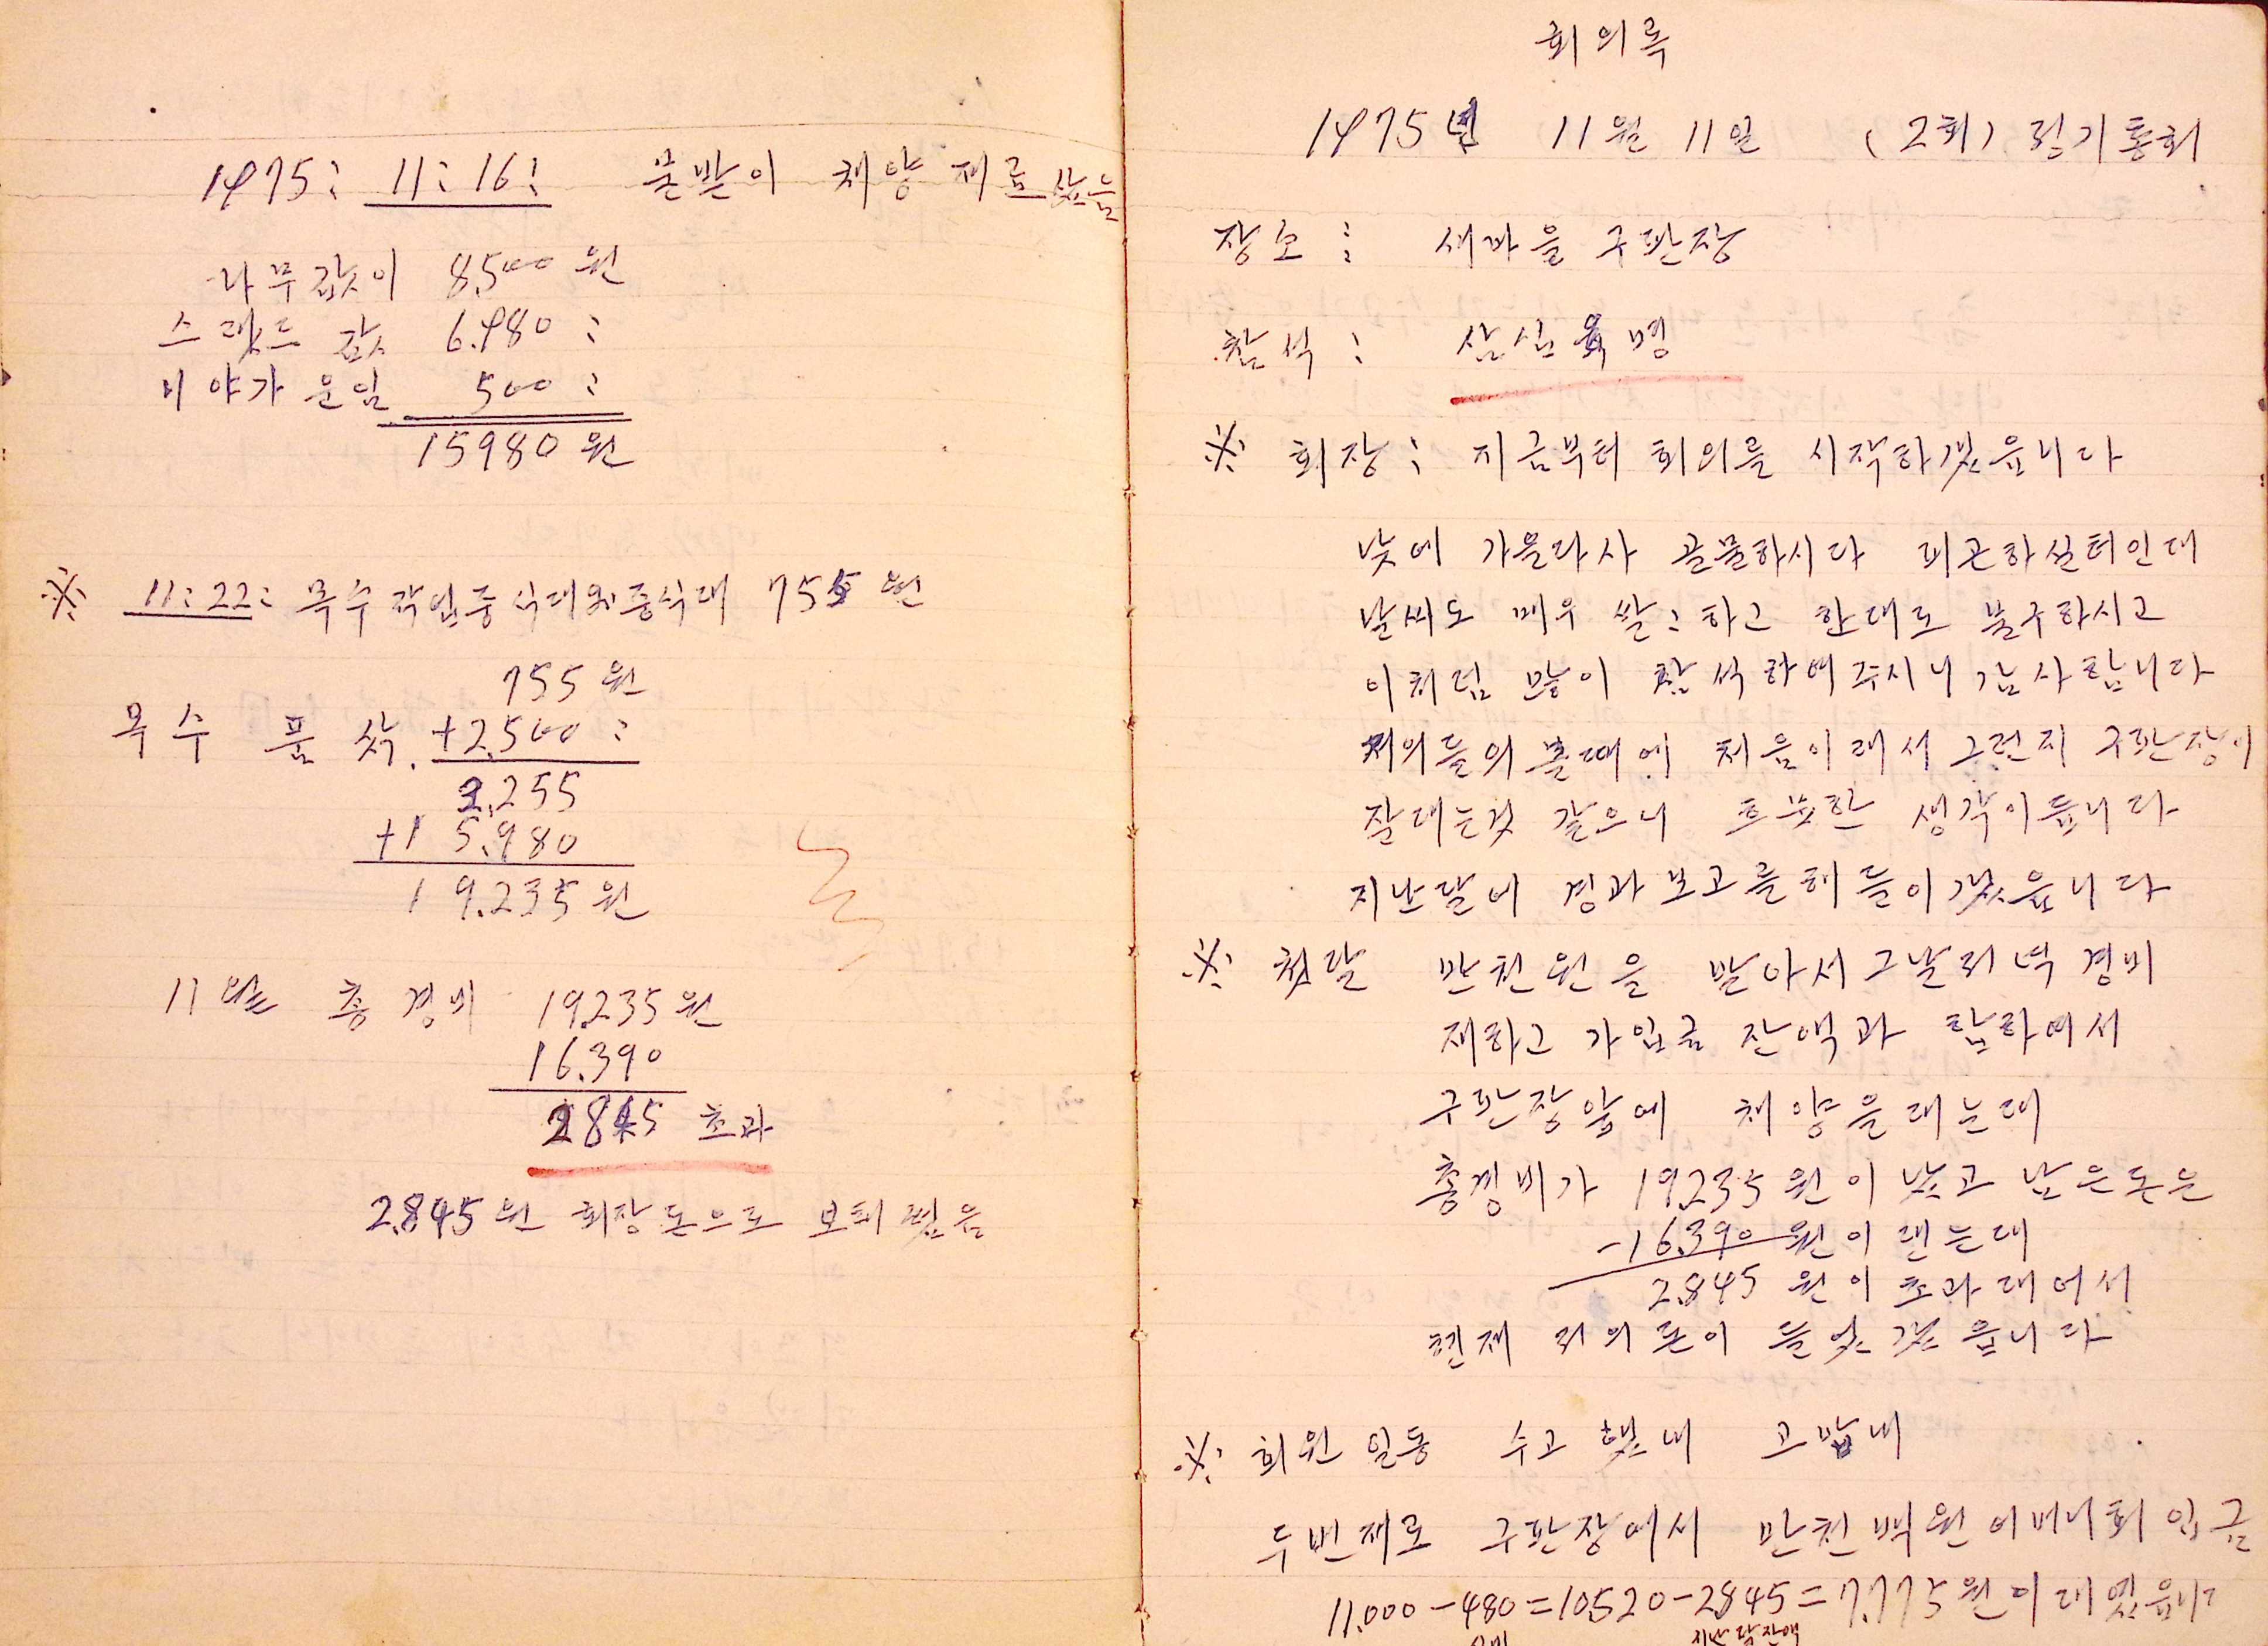 1975: 11:16: 물받이 채양 재료 삿음
나무값이 8,500 원
스래트 값 6,980 :
니야가 운임 500 :
15980 원
※ 11:22: 목수 작업중식대와중식대 755 원
755 원
목수 품삯. +2,500 :
3,255
+15,980
19,235 원
11월 총경비 19,235 원
16,390
2845 초과
2,845 원 회장 돈으로 보태 씻음
회의록
1975년 11월 11일 (2회) 정기총회
장소 : 새마을 구판장
참석 : 삼십육명
※ 회장 : 지금부터 회의를 시작하겟읍니다
낮에 가을다사 골몰하시다 피곤하실터인대
날씨도 매우 쌀:하고 한대도 불구하시고
이처럼 많이 참석하여주시니 감사합니다
저의들의 볼때에 처음이래서 그런지 구판장이
잘대는것 같으니 흐뭇한 생각이듭니다
지난달에 경과보고를해 들이겟읍니다
※ 첫달 만천원을 받아서 그날저녁 경비
재하고 가입금 잔액과 합하여서
구판장앞에 채양을대는대
총경비가 19,235 원이 낫고 남은돈은
-16,390 원이 랜는대
2,845 원이 초과대어서
현재 저의돈이 들엇갓읍니다
※ 회원 일동 수고햇내 고맙내
두번째로 구판장에서 만천백원 어머니회 입금
11.000-480=10,520-2845=7,775원이대엿읍니다
지난달잔액